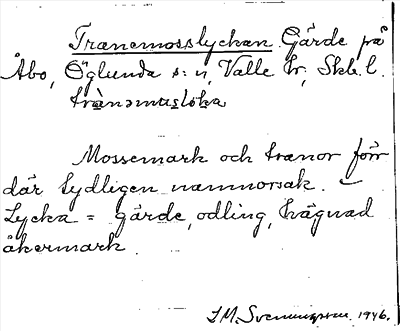 Tranemosslyckan. Gärde på
Åbo, Öglunda s:n, Valle hr, Skb. l.
trànəmusløka
Mossemark och tranor förr
där tydligen namnorsak. –
Lycka = gärde, odling, hägnad
åkermark.
I.M. Svenungsson 1946.